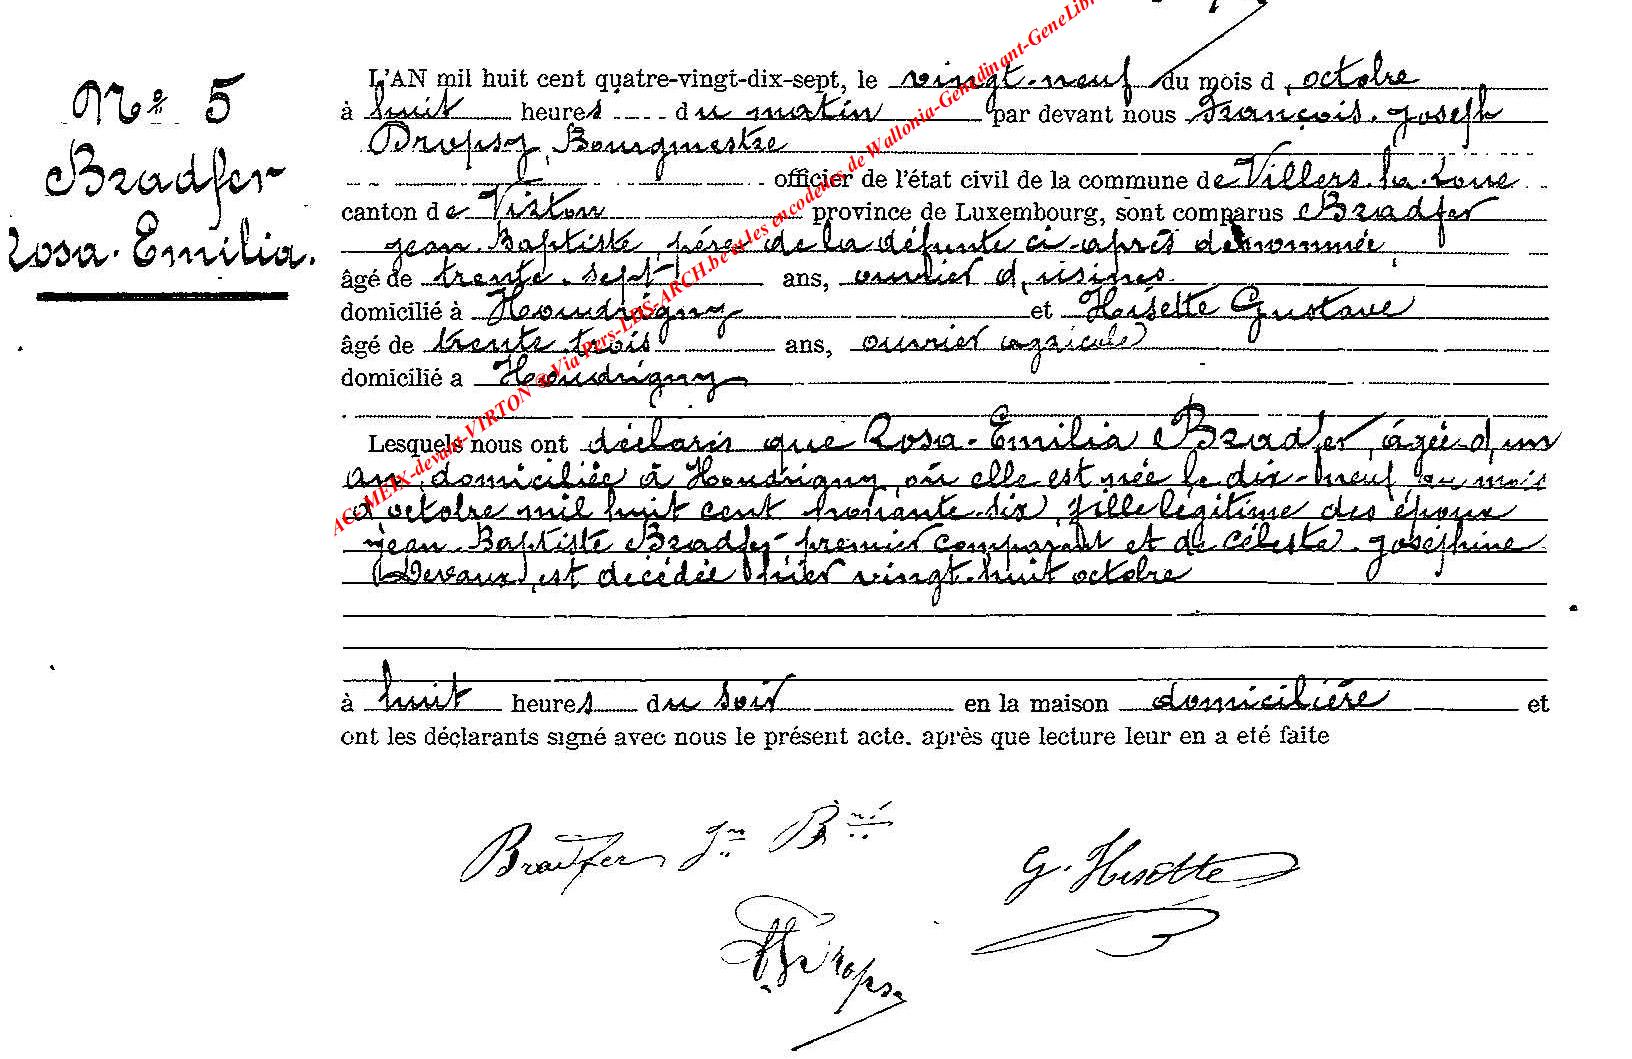 Nº 5
Bradfer
Rosa-Emilia.
L'AN mil huit cent quatre-vingt-dix-sept, le vingt-neuf du mois d'octobre
à huit heures du matin par devant nous François-Joseph
Dropsy, Bourgmestre
officier de l'état civil de la commune de Villers-la-Loue
canton de Virton province de Luxembourg, sont comparus Bradfer
Jean-Baptiste, père de la défunte ci-après dénommée,
âgé de trente-sept ans, ouvrier d'usines
domicilié à Houdrigny et Hisette Gustave
âgé de trente trois ans, ouvrier agricole
domicilié a Houdrigny
Lesquels nous ont déclaré que Rosa-Emilia Bradfer, âgée d'un
an, domiciliée à Houdrigny, où elle est née le dix-neuf du mois
d'octobre mil huit cent nonante-six, fille légitime des époux
Jean-Baptiste Bradfer, premier comparant et de Céleste-Joséphine
Devaux, est décédée hier vingt-huit octobre
à huit heures du soir en la maison domicilière et
ont les déclarants signé avec nous le présent acte. après que lecture leur en a eté faite
Bradfer Jn Bte
G. Hisette
Dropsy
AC-MEIX-devant-VIRTON ® Via Pers-LDS-ARCH.be et les encodeurs de Wallonia-Genedinant-GeneLib